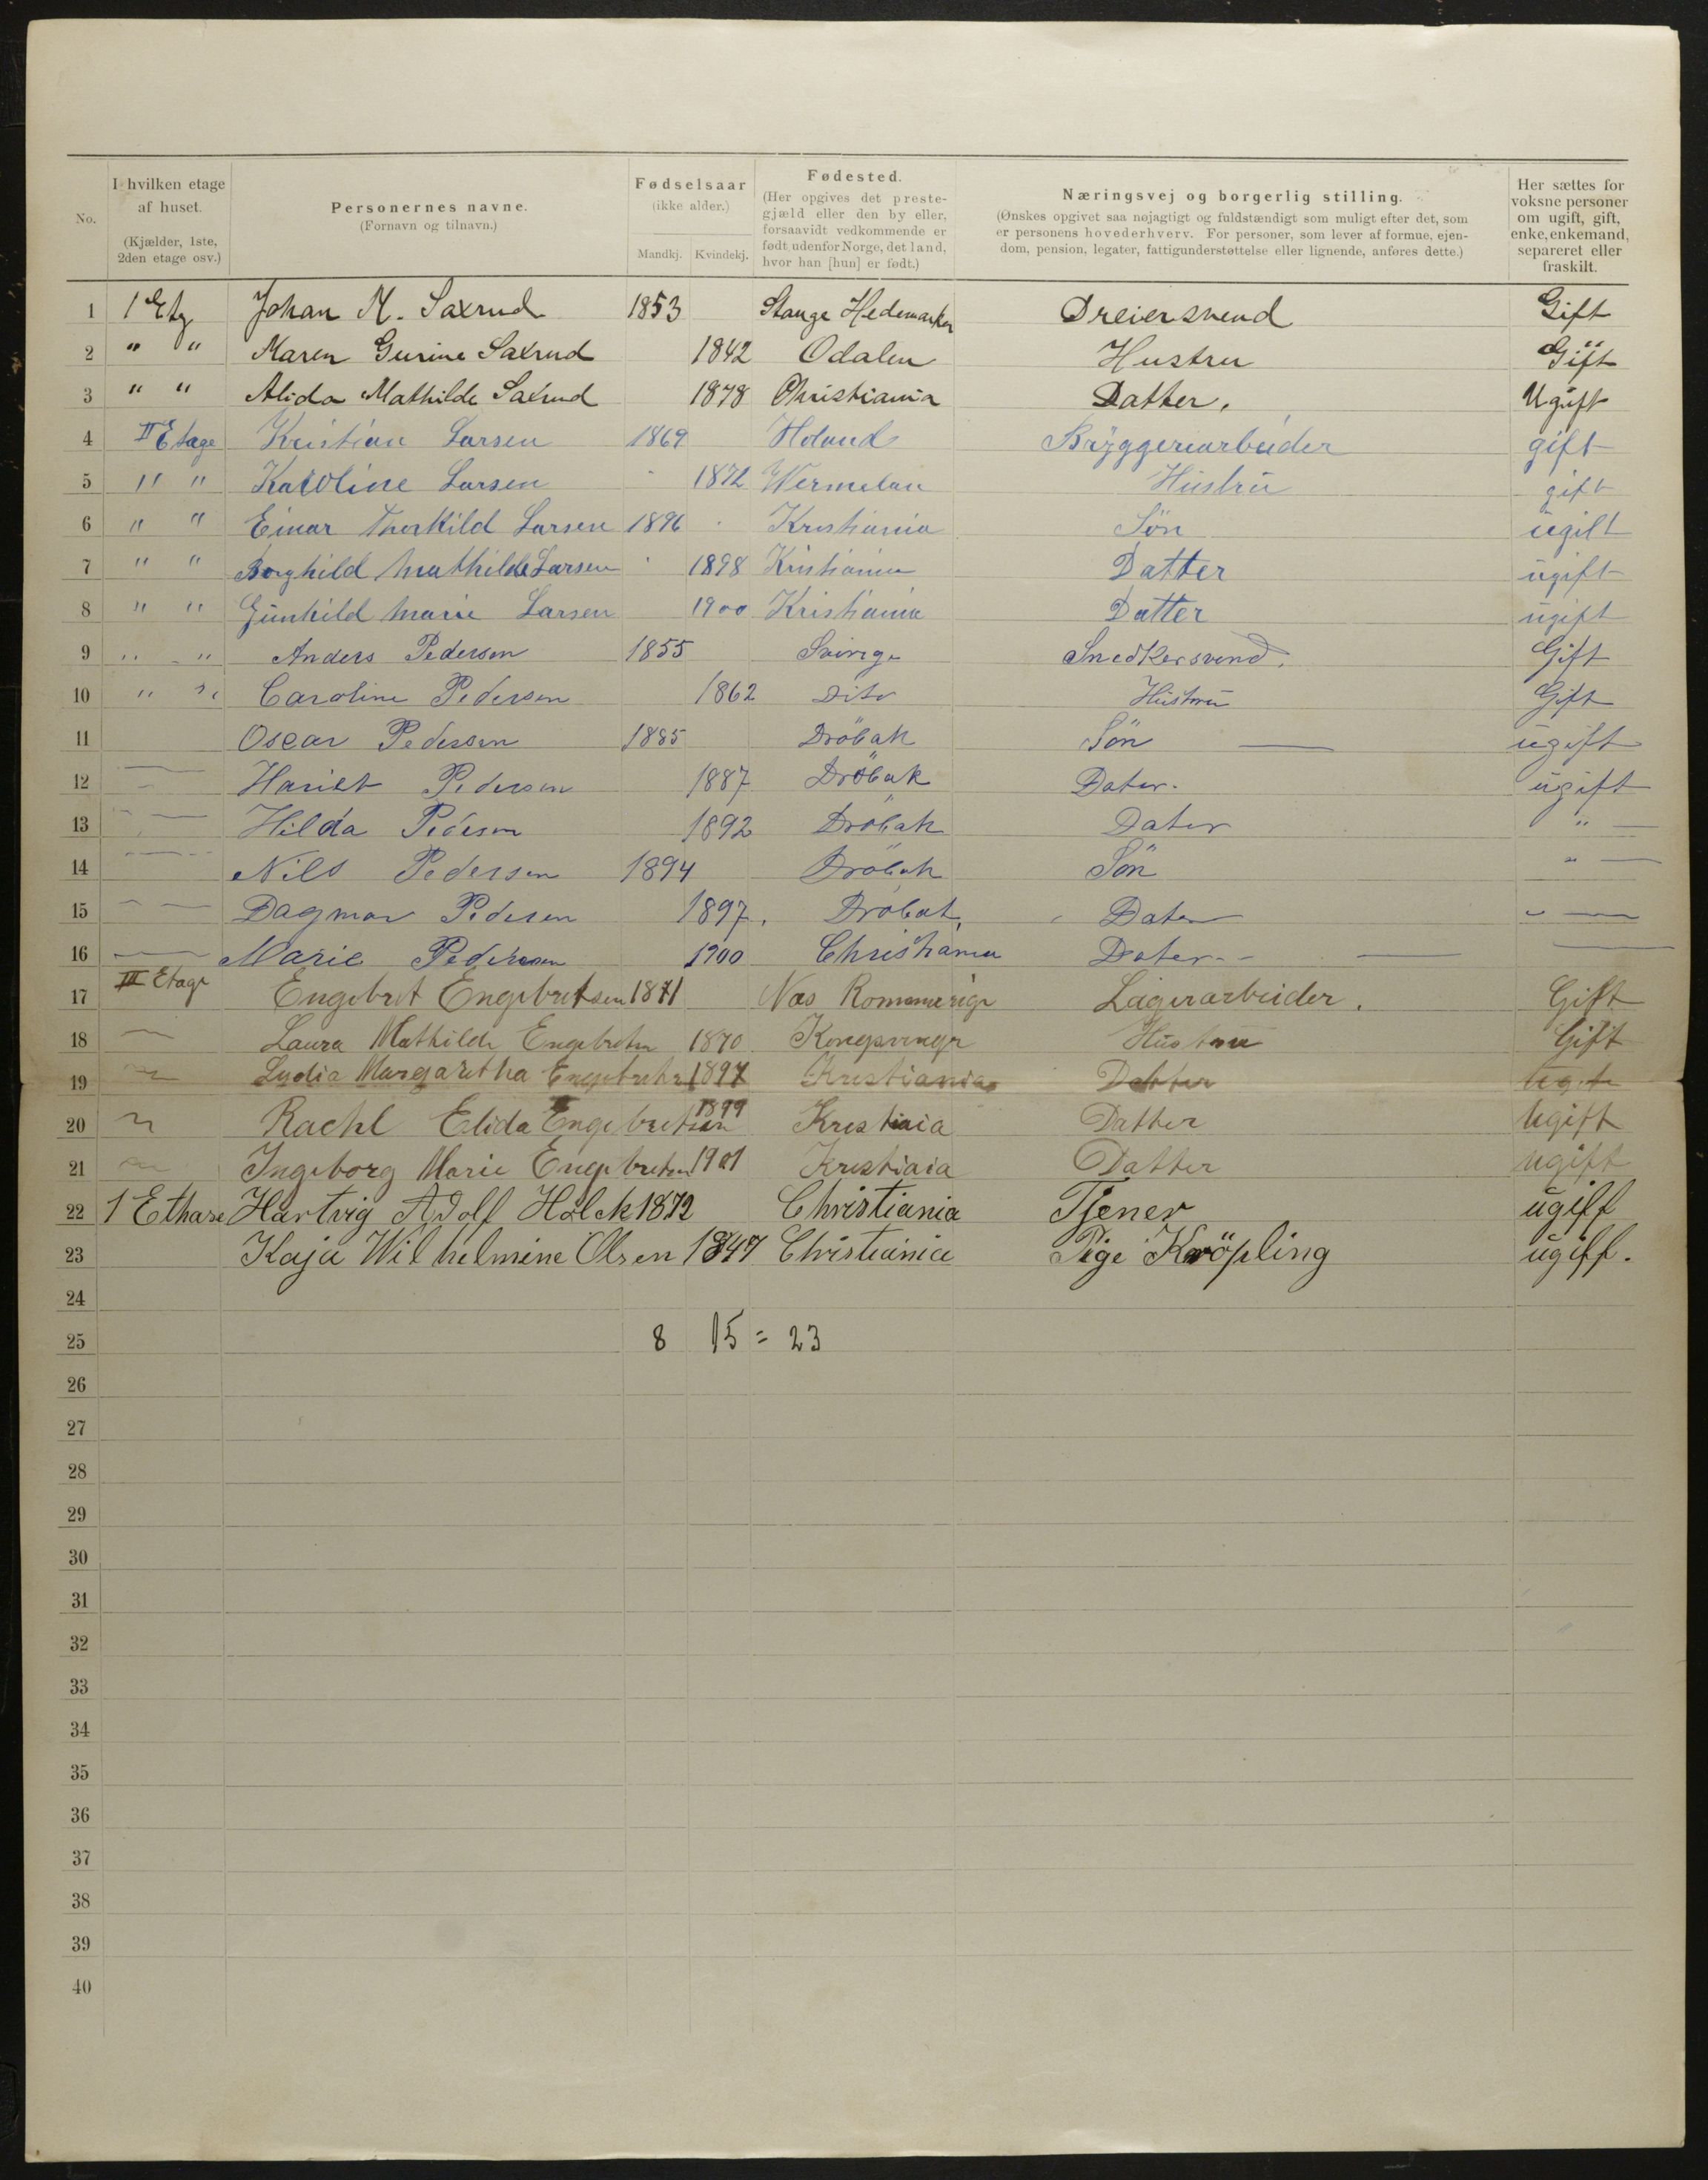 No.
I hvilken etage af huset.
(Kjælder, 1ste, 2den etage osv.)
Personernes navne.
(Fornavn og tilnavn.)
Fødselsaar
(ikke alder.)
Mandkj. Kvindekj.
Fødested.
(Her opgives det prestegjæld eller den by eller, forsaavidt vedkommende er født udenfor Norge, det land, hvor han [hun] er født.)
Næringsvej og borgerlig stilling.
(Ønskes opgivet saa nøjagtigt og fuldstændigt som muligt efter det, som er personens hovederhverv. For personer, som lever af formue, ejendom, pension, legater, fattigunderstøttelse eller lignende, anføres dette.)
Her sættes for voksne personer om ugift, gift, enke, enkemand, separeret eller fraskilt.
1 1 Etg Johan M. Saxrud 1853 Stange Hedemarken Dreiersvend Gift
2 " " Maren Gurine Saxrud 1842 Odalen Hustru Gift
3 " " Alida Mathilde Saxrud 1878 Christiania Datter. Ugift
4 II Etage Kristian Larsen 1869 Höland Bryggeriarbeider gift
5 " " Karoline Larsen 1872 Wermelan Hustru gift
6 " " Einar Thorkild Larsen 1896 Kristiania Sön ugift
7 " " Borghild Mathilde Larsen 1898 Kristiania Datter ugift
8 " " Gunhild Marie Larsen 1900 Kristiania Datter ugift
9 " " Anders Pedersen 1855 Sverige Snedkersvend. Gift
10 " " Caroline Pedersen 1862 Dito Hustru Gift
11 Oscar Pedersen 1885 Dröbak Sön — ugift
12 — Hariet Pedersen 1887 Dröbak Dater. ugift
13 — Hilda Pedersen 1892 Dröbak Dater " —
14 — Nils Pedersen 1894 Dröbak Sön " —
15 — Dagmar Pedersen 1897. Dröbak, Dater " —
16 — Marie Pedersen 1900 Christiania Dater - - — —
17 III Etage Engebret Engebretsen 1871 Næs Rommerige Lagerarbeider. Gift
18 Laura Mathilde Engebretsen 1870 Kongsvinger Hustru Gift
19 Lydia Margaretha Engebretsen 1897 Kristiania Datter Ugift
20 Rachl Elida Engebretsen 1899 Kristiaia Datter Ugift
21 Ingeborg Marie Engebretsen 1901 Kristiaia Datter ugift
22 1 Ethase Hartvig Adolf Holck 1872 Christiania Tjener ugiff
23 Kaja Wilhelmine Olsen 1847 Christiania Pige Kröpling ugiff.
24
25 8 15 = 23
26
27
28
29
30
31
32
33
34
35
36
37
38
39
40